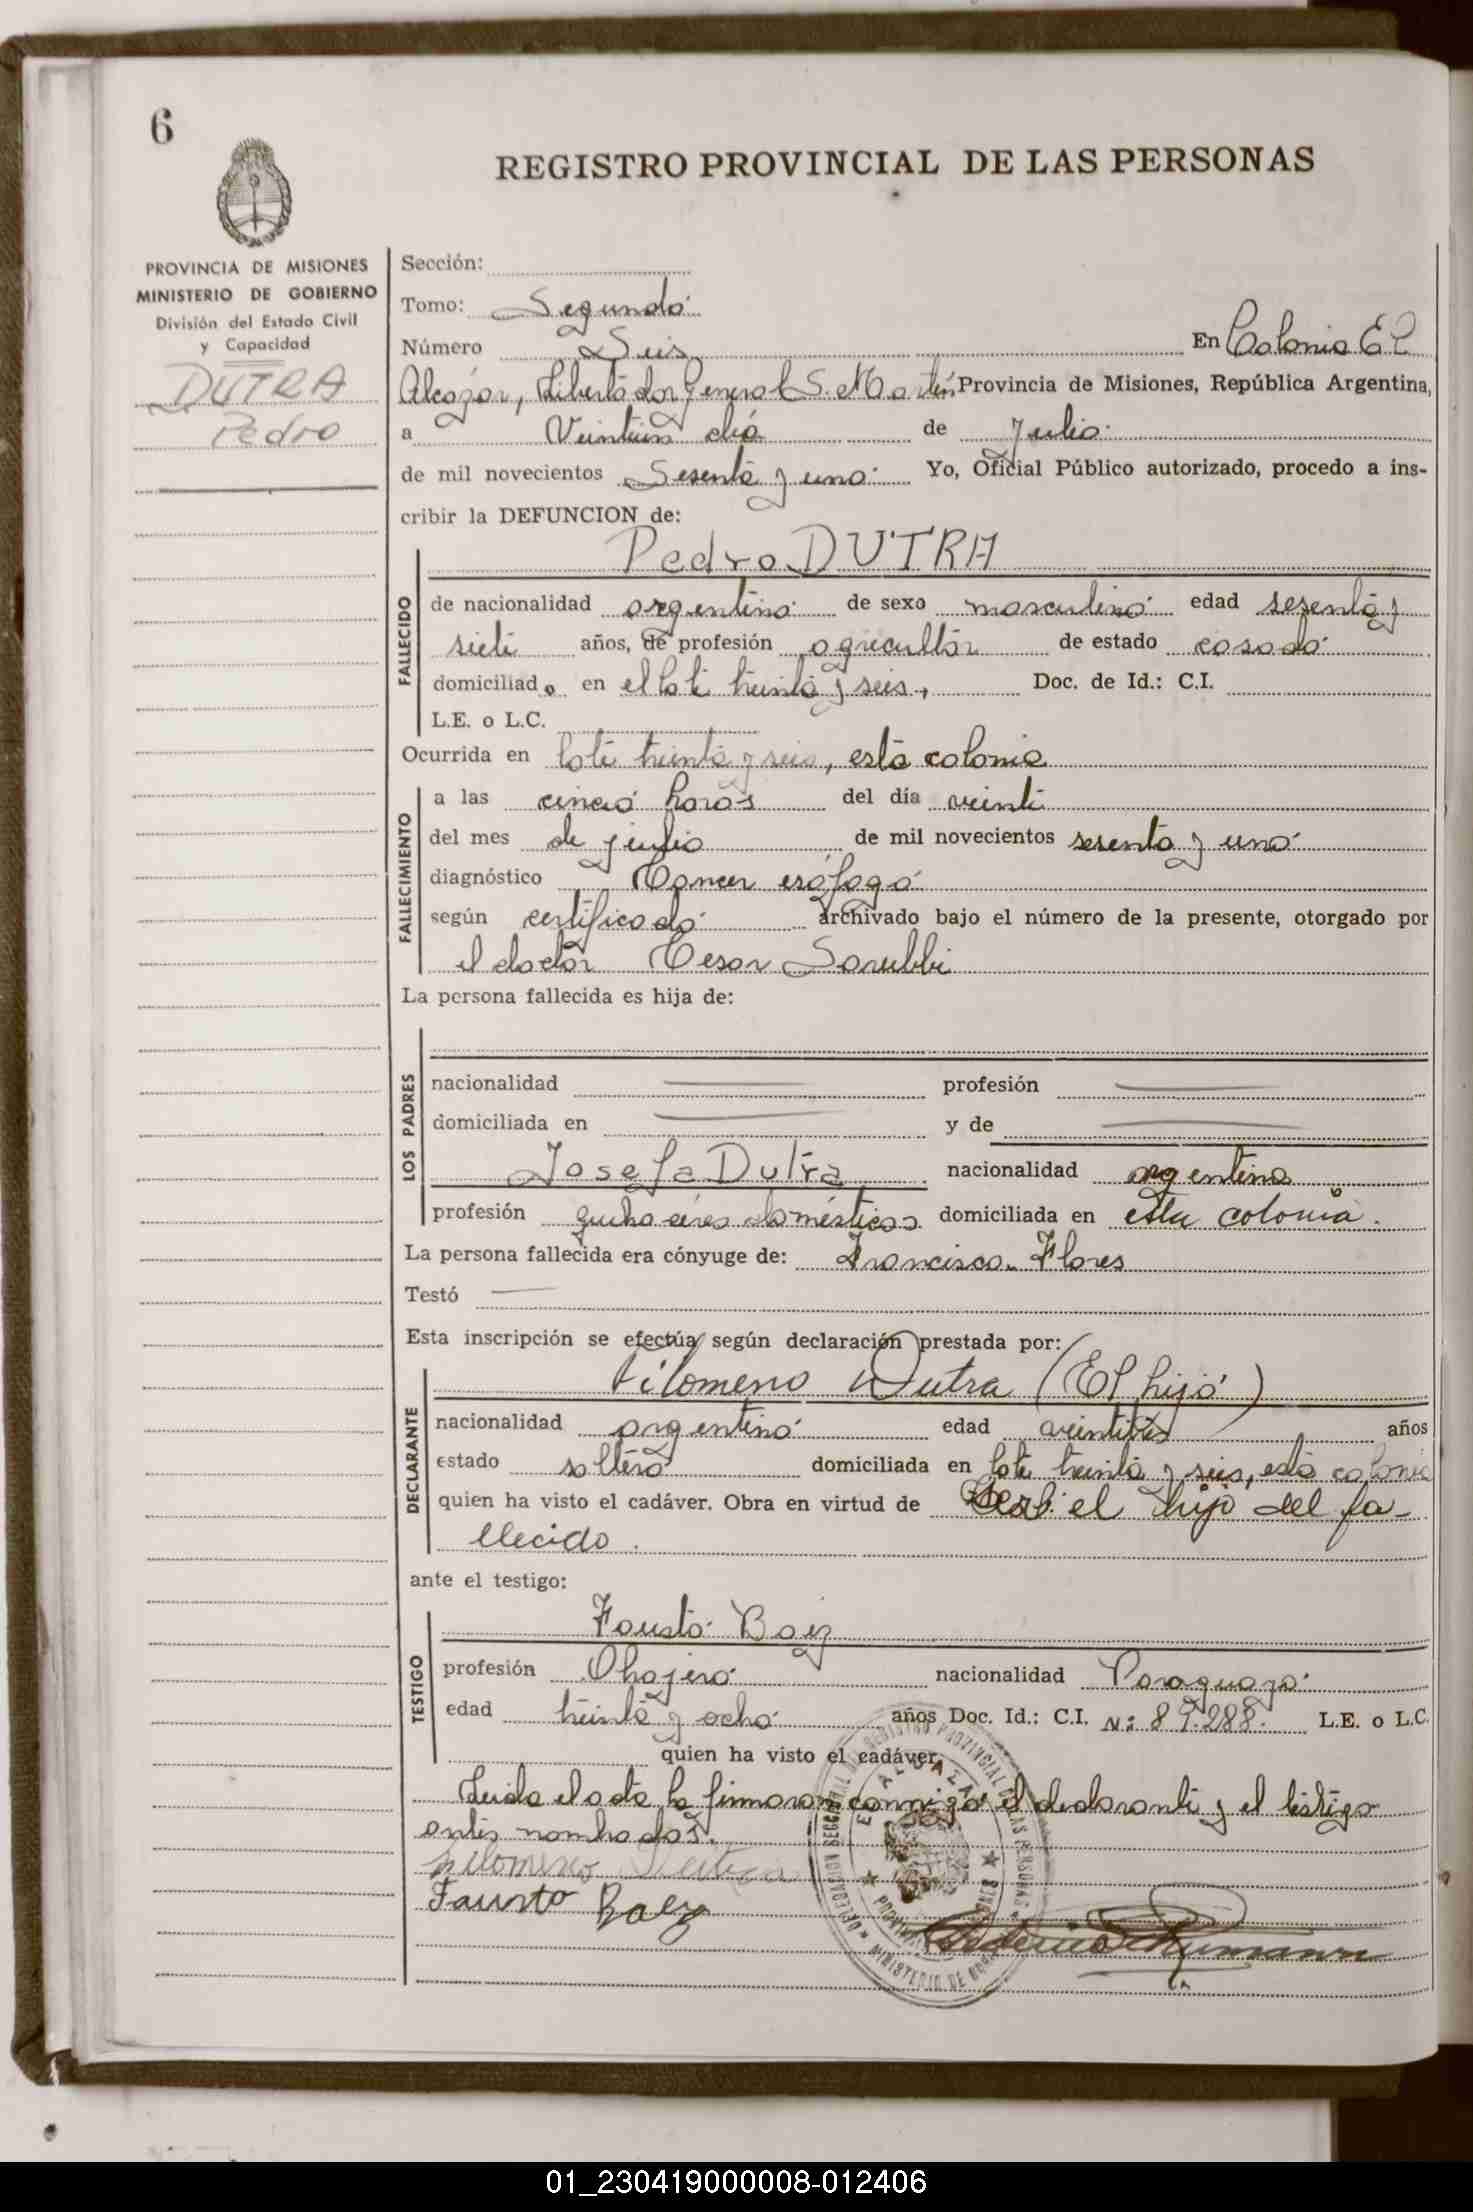 6
REGISTRO PROVINCIAL DE LAS PERSONAS
PROVINCIA DE MISIONES
MINISTERIO DE GOBIERNO
División del Estado Civil
y Capacidad
DUTRA
Pedro
Sección:
Tomo: Segundo
Número Seis En Colonia El
Alcázar, Libertador General S. Martín Provincia de Misiones, República Argentina,
a Veintiun día de Julio
de mil novecientos Sesenta y uno Yo, Oficial Público autorizado, procedo a ins-
cribir la DEFUNCION de:
Pedro DUTRA
FALLECIDO
de nacionalidad argentino de sexo masculino edad sesenta y
siete años, de profesión agricultor de estado casado
domiciliado en el lote treinta y seis, Doc. de Id.: C.I.
L.E. o L.C.
Ocurrida en lote treinta y seis, esta colonia
FALLECIMIENTO
a las cinco horas del día veinte
del mes de julio de mil novecientos sesenta y uno
diagnóstico Cancer esófago
según certificado archivado bajo el número de la presente, otorgado por
el doctor Cesar Sarubbi
La persona fallecida es hija de:
LOS PADRES
nacionalidad profesión
domiciliada en y de
Josefa Dutra nacionalidad argentina
profesión quehaceres domésticos domiciliada en esta colonia.
La persona fallecida era cónyuge de: Francisca Flores
Testó
Esta inscripción se efectúa según declaración prestada por:
Filomeno Dutra (El hijo)
DECLARANTE
nacionalidad argentino edad años
estado soltero domiciliada en lote treinta y seis, esta colonia
quien ha visto el cadáver. Obra en virtud de el hijo del fa-
llecido.
ante el testigo:
Fausto Baez
TESTIGO
profesión Obajero nacionalidad Paraguayo
edad treinta y ocho años Doc. Id.: C.I. Nº 89.288. L.E. o L.C.
quien ha visto el cadáver.
Leida el acta la firmaron conmigo el declarante y el testigo
antes nombrados.
Filomeno Dutra
Fausto Baez
Federico
01_230419000008-012406